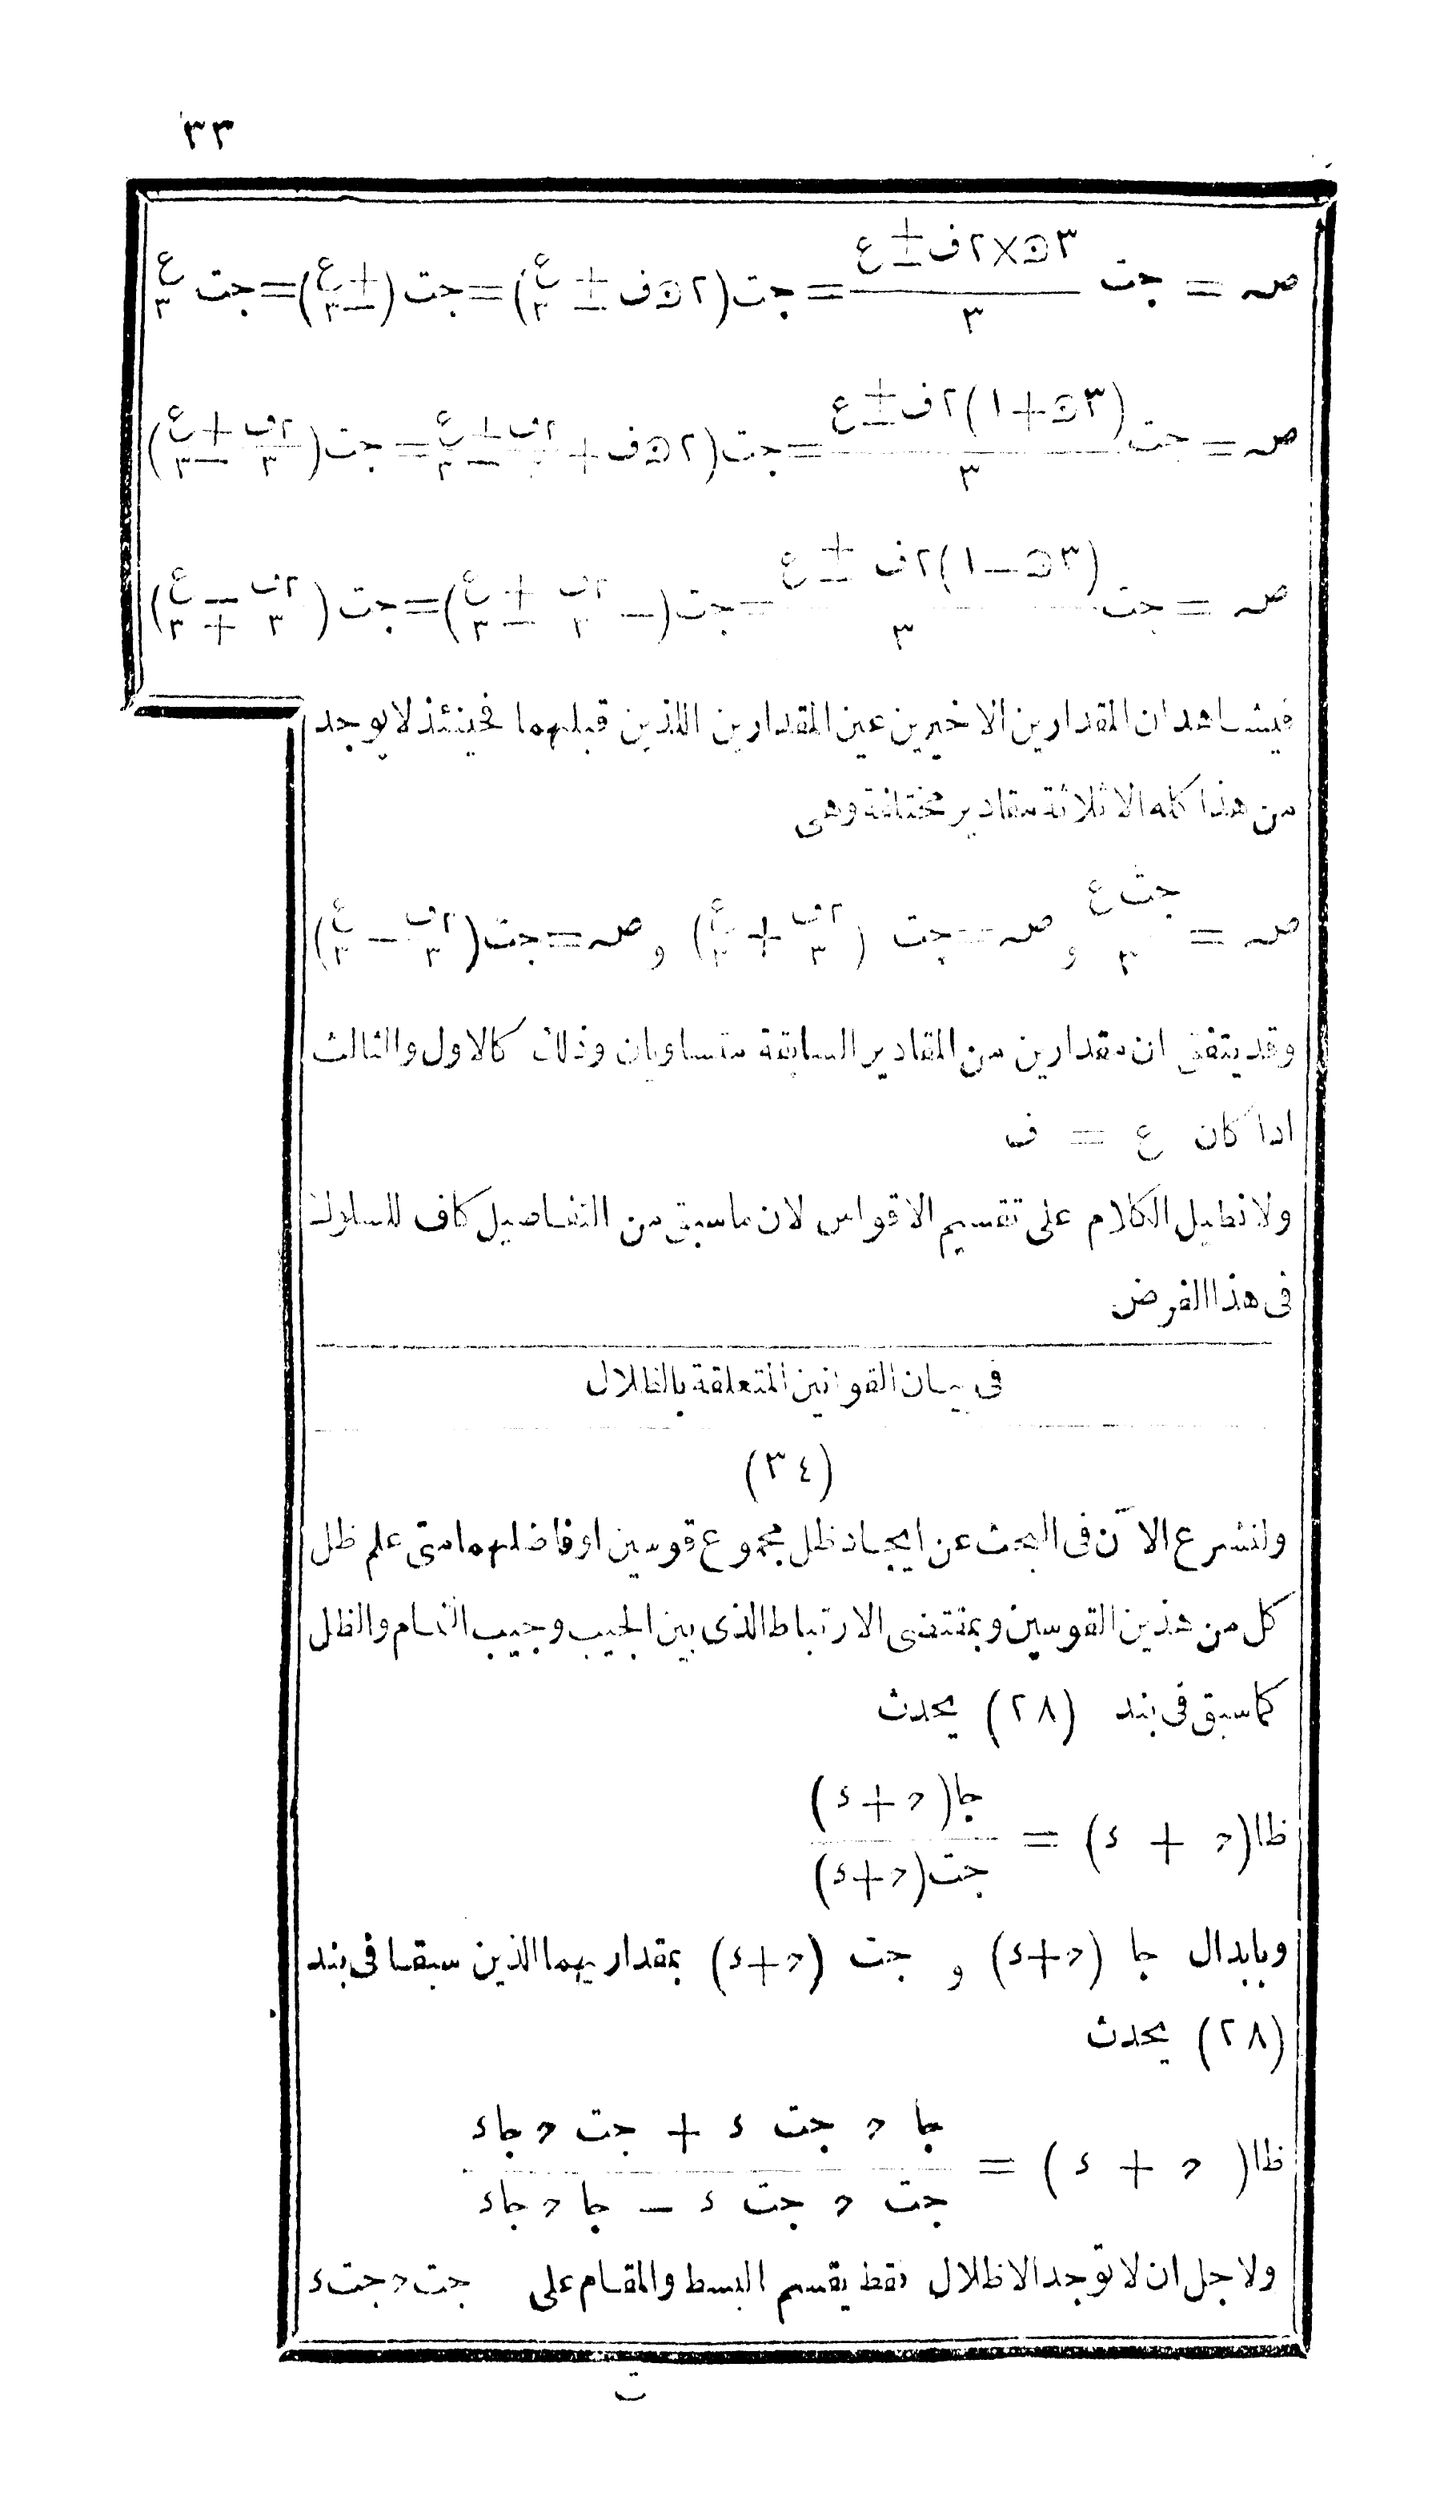 ٣٣
صہ = جت (٣ﻫ×٢ف ± ع)/٣ = جت(٢ﻫف ± ع/٣) = جت(± ع/٣) = جت ع/٣
صہ = جت ((٣ﻫ+١)٢ف ± ع)/٣ = جت(٢ﻫف + ٢ف/٣ ± ع/٣) = جت(٢ف/٣ ± ع/٣)
صہ = جت ((٣ﻫ−١)٢ف ± ع)/٣ = جت(− ٢ف/٣ ± ع/٣) = جت(٢ف/٣ ∓ ع/٣)
فيشاهد ان المقدارين الاخيرين عين المقدارين اللذين قبلهما فحينئذ لا يوجد
من هذا كله الاثلاثة مقادير مختلفة وهى
صہ = جت ع/٣ و صہ = جت (٢ف/٣ + ع/٣) و صہ = جت(٢ف/٣ − ع/٣)
وقد يتفق ان مقدارين من المقادير السابقة متساويان وذلك كالاول والثالث
اذا كان ع = ف
ولا نطيل الكلام على تقسيم الاقواس لان ما سبق من التفاصيل كاف للسلوك
فى هذا الغرض
فى بيان القوانين المتعلقة بالظلال
(٣٤)
ولنشرع الآن فى البحث عن ايجاد ظل مجموع قوسين او فاضلهما متى علم ظل
كل من هذين القوسين وبمقتضى الارتباط الذى بين الجيب وجيب التمام والظل
كما سبق فى بند (٢٨) يحدث
ظا(ح + ء) = جا(ح+ء)/جت(ح+ء)
وبابدال جا (ح+ء) و جت (ح+ء) بمقداريهما الذين سبقا فى بند
(٢٨) يحدث
ظا( ح + ء ) = (جا ح جت ء + جت ح جاء)/(جت ح جت ء − جا ح جاء)
ولاجل ان لا توجد الا ظلال فقط يقسم البسط والمقام على جت ح جت ء